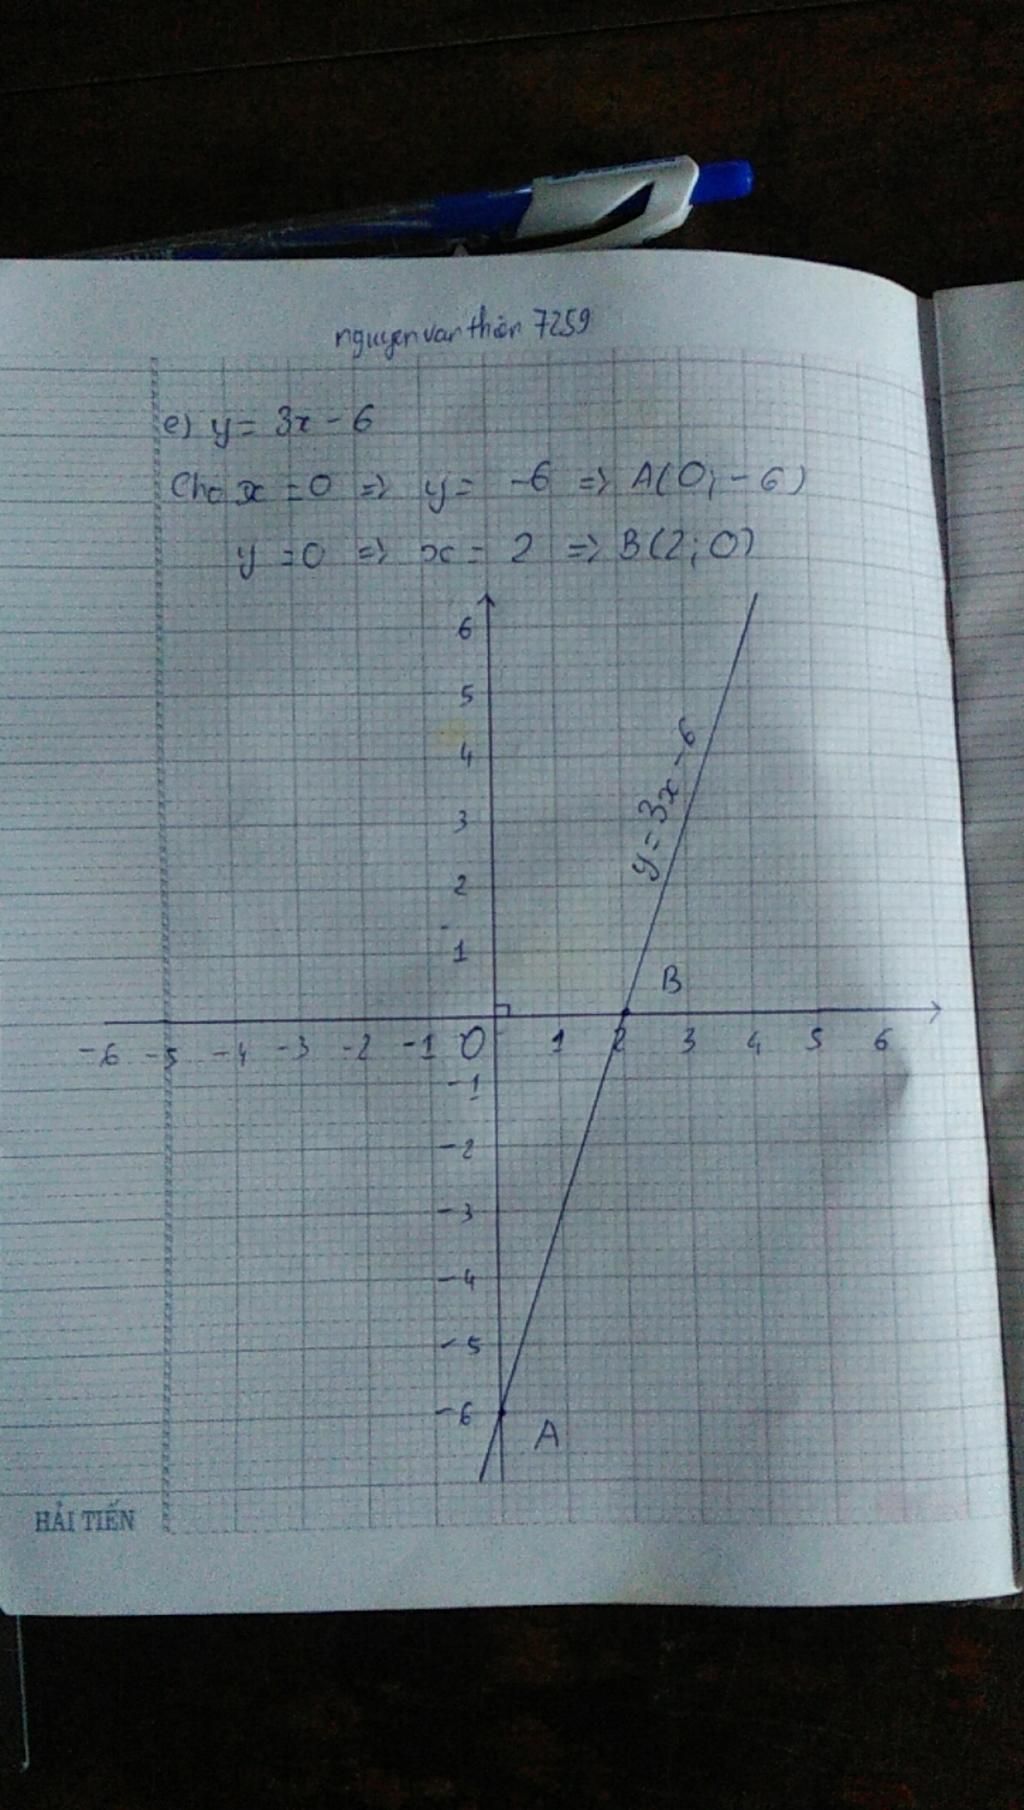 nguyenvanthien 7259
e) y = 3x - 6
Cho x = 0 => y = -6 => A(0; -6)
y = 0 => x = 2 => B(2; 0)
6
5
4
3
2
1
y = 3x - 6
B
-6 -5 -4 -3 -2 -1 O 1 2 3 4 5 6
-1
-2
-3
-4
-5
-6
A
HẢI TIẾN